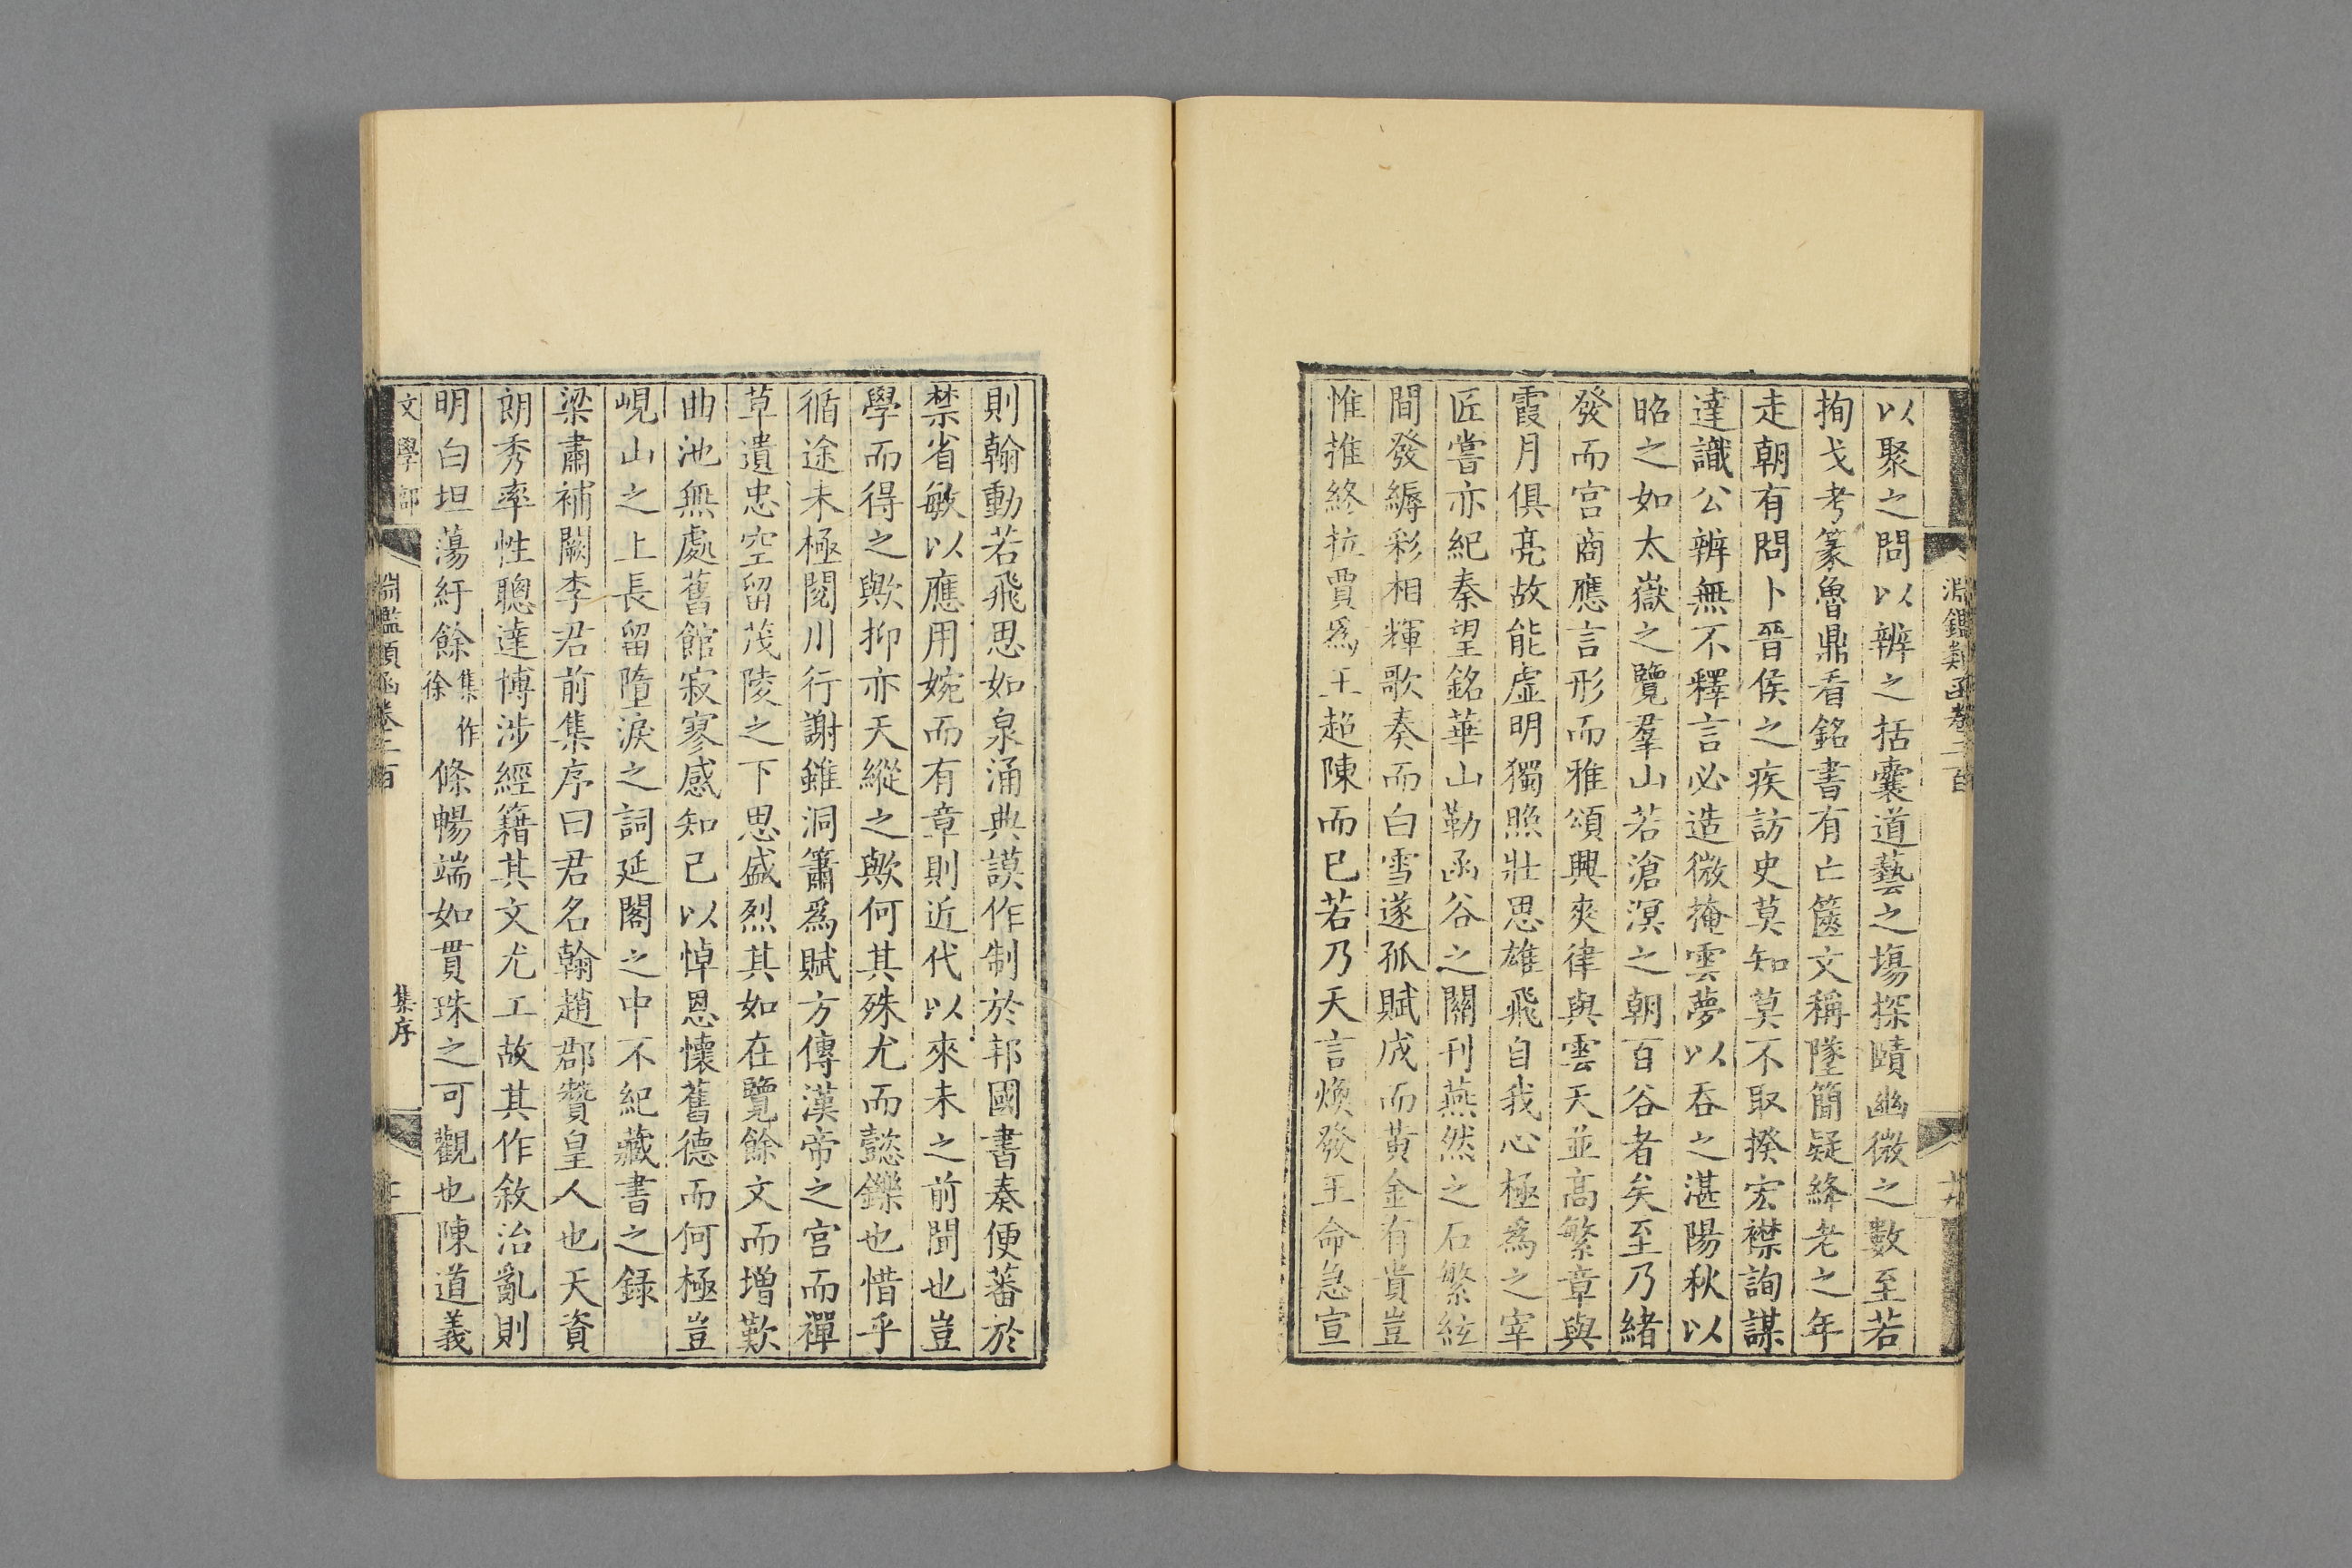 淵鑑類函卷二百
以聚之問以辨之括囊道藝之塲探賾幽微之數至若
拘戈考篆魯鼎看銘書有亡篋文稱墜簡疑絳老之年
走朝有問卜晉侯之疾訪史莫知莫不取揆宏襟詢謀
達識公辨無不釋言必造微掩雲夢以吞之湛陽秋以
昭之如太嶽之覽羣山若滄溟之朝百谷者矣至乃緒
發而宫商應言形而雅頌興爽律與雲天並高繁章與
霞月俱亮故能虛明獨照壯思雄飛自我心極爲之宰
匠嘗亦紀秦望銘華山勒函谷之關刊燕然之石繁絃
間發縟彩相輝歌奏而白雪遂孤賦成而黄金有貴豈
惟推終拉賈爲王超陳而已若乃天言煥發王命急宣
則翰動若飛思如泉涌典謨作制於邦國書奏便蕃於
禁省敏以應用婉而有章則近代以來未之前聞也豈
學而得之歟抑亦天縱之歟何其殊尤而懿鑠也惜乎
循途未極閱川行謝雖洞簫爲賦方傳漢帝之宫而禪
草遺忠空留茂陵之下思盛烈其如在覽餘文而增歎
曲池無處舊館寂寥感知己以悼恩懷舊德而何極豈
峴山之上長留墮淚之詞延閣之中不紀藏書之録
梁肅補闕李君前集序曰君名翰趙郡贊皇人也天資
朗秀率性聰達博涉經籍其文尤工故其作敘治亂則
明白坦蕩紆餘集作徐條暢端如貫珠之可觀也陳道義
文學部 淵鑑類函卷二百 集序